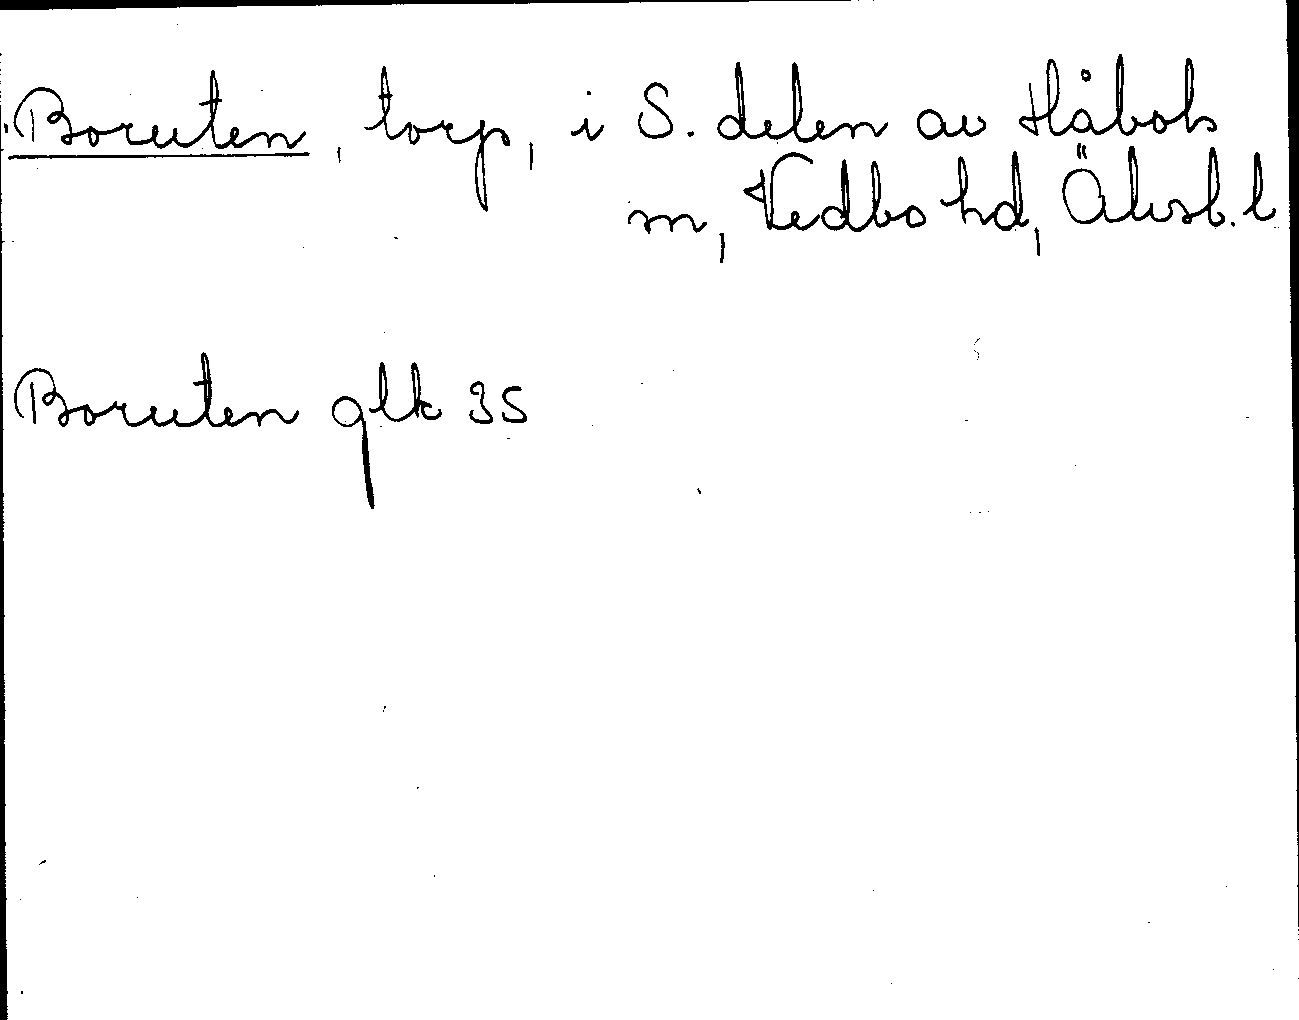 Boruten, torp, i S. delen av Håbols
m, Vedbo hd, Älvsb. l
Boruten glk 35